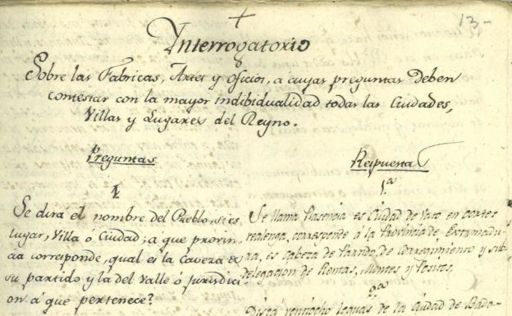 13-
Interrogatorio
Sobre las Fabricas, Artes y oficios, a cuyas preguntas deben
contestar con la mayor indibidualidad todas las Ciudades,
Villas y Lugares del Reyno.
Preguntas
1.
Se dirá el nombre del Pueblo, si es
lugar, Villa ó Ciudad; a que provin
cia corresponde, qual es la Caveza de
su partido y la del Valle ó Jurisdici
on á que pertenece?
Respuestas
1.ª
Se llama Placencia es Ciudad de Voto en cortes
realenga, corresponde á la Provincia de Extremadu
ra, es Cabeza de Partido, de Corregimiento y sub
delegacion de Rentas, Montes y Positos,
2.ª
Dista leguas de la Ciudad de Bada-